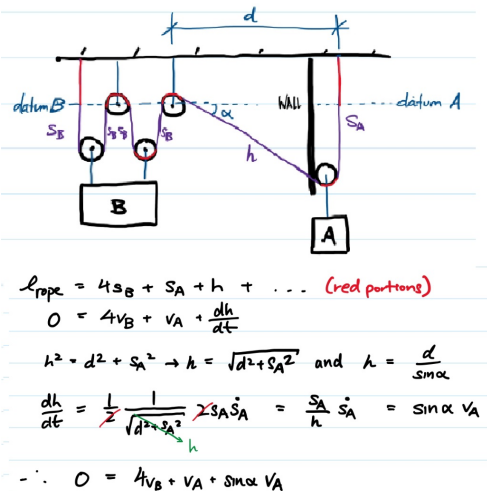 d
datum B
α
WALL
datum A
S_B
S_B S_B
S_B
S_A
h
B
A
l_rope = 4S_B + S_A + h + ... (red portions)
0 = 4v_B + v_A + dh/dt
h² = d² + S_A² → h = √(d² + S_A²) and h = d/sinα
dh/dt = 1/2 1/√(d² + S_A²) 2S_AṠ_A = S_A/h Ṡ_A = sinα v_A
h
∴ 0 = 4v_B + v_A + sinα v_A